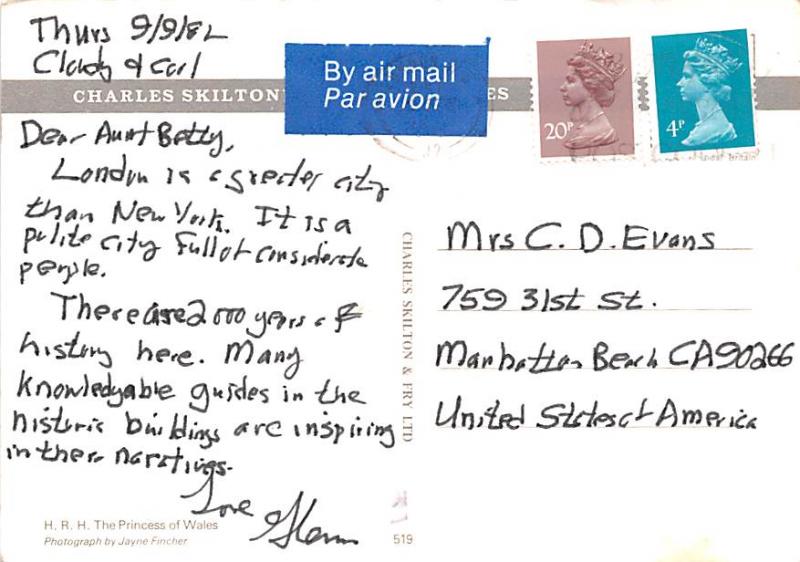 Thurs 9/9/82
Cloudy & Cool
CHARLES SKILTON
ES
By air mail
Par avion
20P
4P
Dear Aunt Betty,
London is a greater city
than New York. It is a
polite city full of considerate
people.
There are 2000 years of
history here. Many
knowledgable guides in the
historic buildings are inspiring
in their naratives.
Love
Glenn
H. R. H. The Princess of Wales
Photograph by Jayne Fincher
519
CHARLES SKILTON & FRY LTD
Mrs C. D. Evans
759 31st St.
Manhattan Beach CA 90266
United States of America